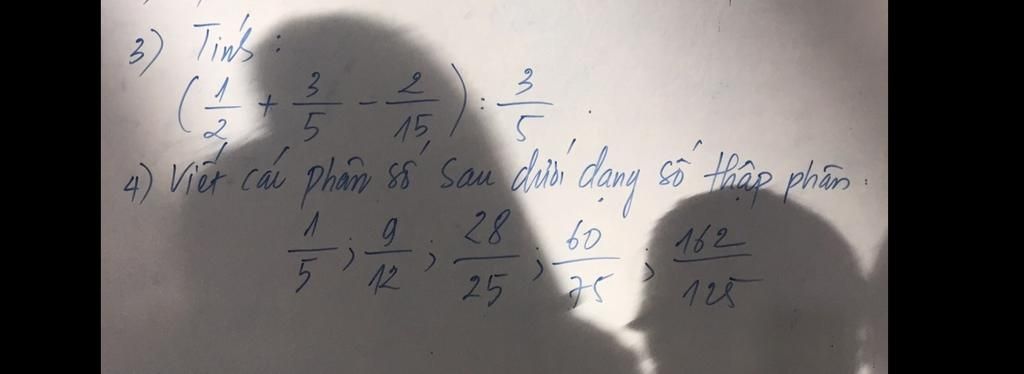 3) Tính :
(1/2 + 3/5 - 2/15) : 3/5 .
4) Viết các phân số sau dưới dạng số thập phân.
1/5 ; 9/12 ; 28/25 ; 60/75 ; 162/125